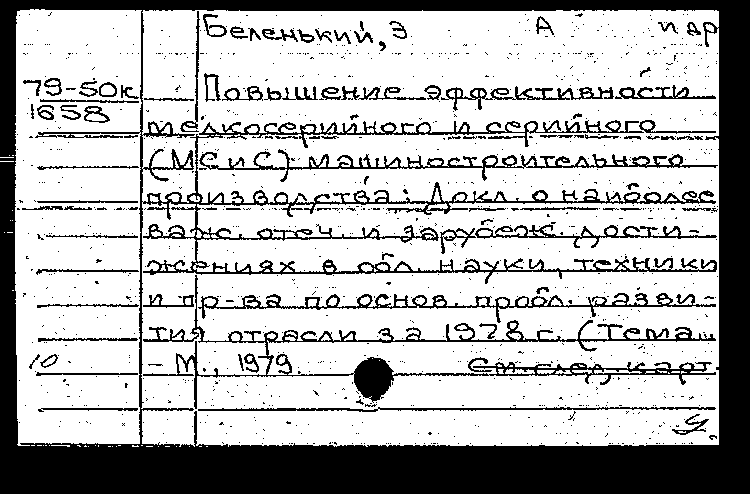 Беленький, Э А и др
79-50к Повышение эффективности
1658 мелкосерийного и серийного
(МС и С) машиностроительного
производства: Докл. о наиболее
важн. отеч. и зарубеж. дости-
жениях в обл. науки, техники
и пр-ва по основ. пробл. разви-
тия отрасли за 1978 г. (Тема...
10 - М., 1979. См. след. карт.